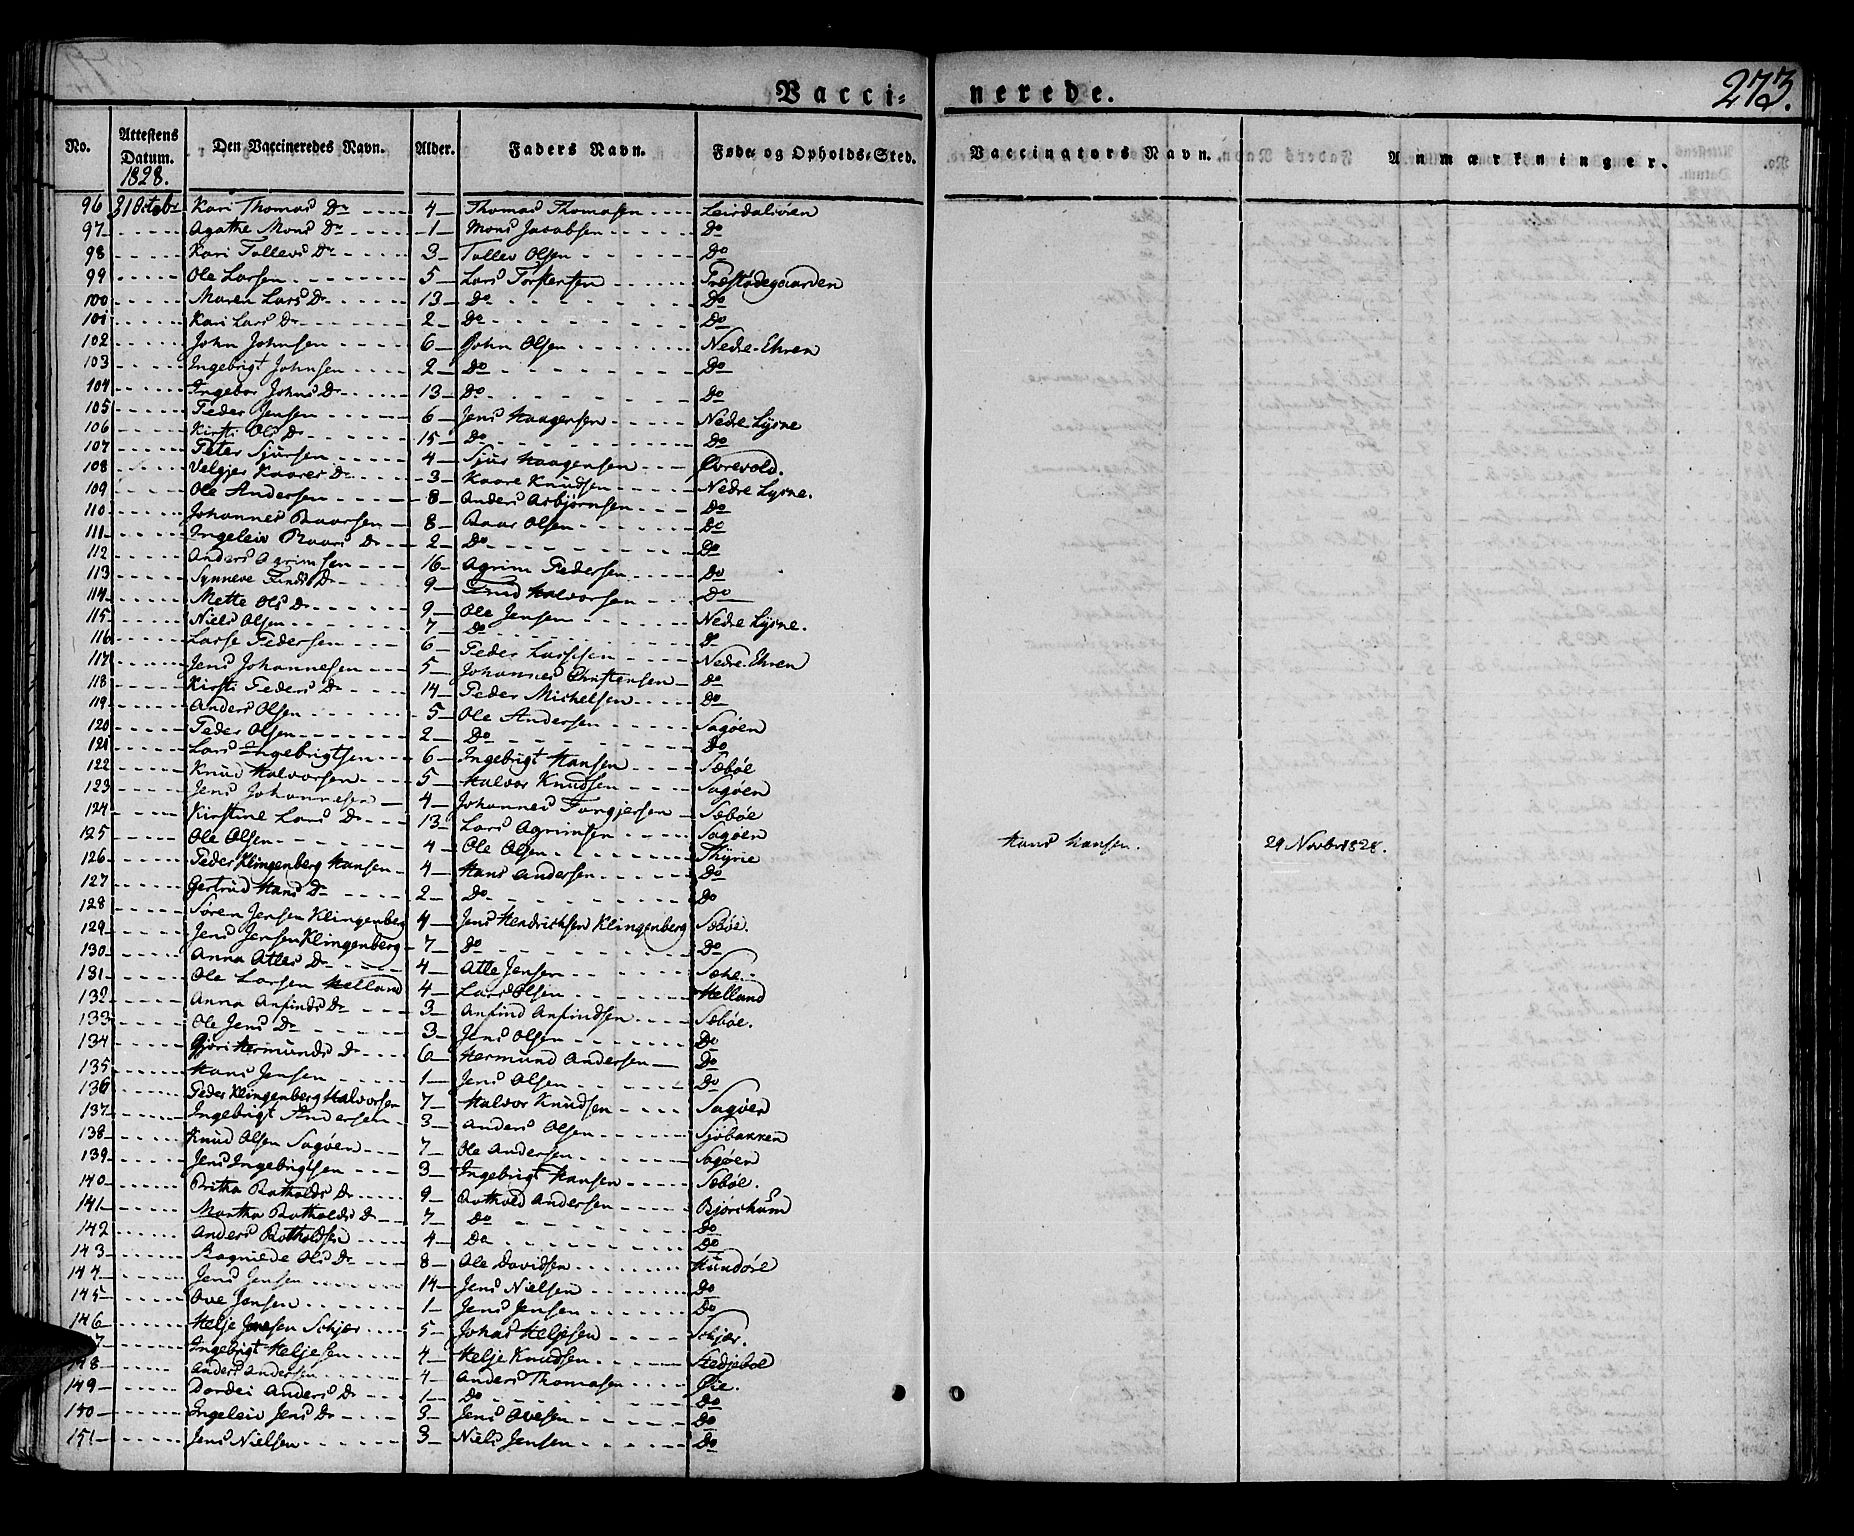 273.
Vacci- nerede.
No. Attestens Datum. 1828. Den Vaccineredes Navn. Alder. Faders Navn. Føde og Opholds-Sted. Vaccinators Navn. Anmærkninger.
96 31 Octobr Kari Thomas Dr 4 Thomas Thomasen Leirdalsøen
97 Agathe Mons Dr 1 Mons Jacobsen Do
98 Kari Tollevs Dr 3 Tollev Olsen Do
99 Ole Larsen 5 Lars Torstensen Præstødegaarden
100 Maren Lars Dr 13 Do Do
101 Kari Lars Dr 2 Do Do
102 John Johnsen 6 John Olsen Nedre-Ehren
103 Ingebrigt Johnsen 2 Do Do
104 Ingebor Johns Dr 13 Do Do
105 Peder Jensen 6 Jens Haagensen Nedre Lysne
106 Kirsti Ols Dr 15 Do Do
107 Peter Sjursen 4 Sjur Haagensen Øvrevold.
108 Velgjer Kaares Dr 3 Kaare Knudsen Nedre Lysne.
109 Ole Andersen 8 Anders Asbjørnsen Do
110 Johannes Baarsen 8 Baar Olsen Do
111 Ingeleiv Baars Dr 2 Do Do
112 Anders Agrimsen 16 Agrim Pedersen Do
113 Synneve Dr 9 Halvorsen Do
114 Mette Ols Dr 9 Ole Jensen Nedre Lysne.
115 Niels Olsen 7 Do Do
116 Larse Pedersen 6 Peder Larssen Nedre-Ehren
117 Jens Johannesen 5 Johannes Christensen Do
118 Kirsti Peders Dr 14 Peder Michelsen Do
119 Anders Olsen 5 Ole Andersen Sagøen
120 Peder Olsen 2 Do Do
121 Lars Ingebrigtsen 6 Ingebrigt Hansen Sæbøe
122 Knud Halvorsen 5 Halvor Knudsen Sagøen
123 Jens Johannesen 4 Johannes Torgjersen Sæbøe
124 Kirstine Lars Dr 13 Lars Agrimsen Sagøen
125 Ole Olsen 4 Ole Olsen Thynie Hans Hansen. 29 Novbr 1828.
126 Peder Klingenberg Hansen 4 Hans Andersen Do
127 Gertrud Hans Dr 2 Do Do
128 Søren Jensen Klingenberg 4 Jens Hendrichsen Klingenberg Sæbøe.
129 Jens Jensen Klingenberg 7 Do Do
130 Anna Atles Dr 4 Atle Jensen
131 Ole Larsen Helland 4 Lars Olsen Helland
132 Anna Anfinds Dr 3 Anfind Anfindsen Sæbøe.
133 Ole Jens Dr 3 Jens Olsen Do
134 Gjøri Hermunds Dr 6 Hermund Andersen Do
135 Hans Jensen 1 Jens Olsen Do
136 Peder Klingenberg Halvorsen 7 Halvor Knudsen Sagøen
137 Ingebrigt Andersen 3 Anders Olsen Sjøbakken
138 Knud Olsen Sagøen 7 Ole Andersen Sagøen
139 Jens Ingebrigtsen 3 Ingebrigt Hansen Sæbøe.
140 Britha Botholds Dr 9 Bothold Andersen Bjørchum
141 Martha Botholds Dr 7 Do Do
142 Anders Botholdsen 4 Do Do
143 Ragnilde Ols Dr 8 Ole Davidsen Hundøre
144 Jens Jensen 14 Jens Nielsen Do
145 Ove Jensen 1 Jens Jensen Do
146 Helje Schjær 5 Johas Heljesen Schjær.
7 Ingebrigt Heljesen 4 Helje Knudsen Stedjeboe
148 Anders Andersen 4 Anders Thomasen Øie.
149 Dordei Anders Dr 1 Do Do
150 Ingeleiv Jens Dr 3 Jens Ovesen Do
151 Jens Nielsen 3 Niels Jensen Do